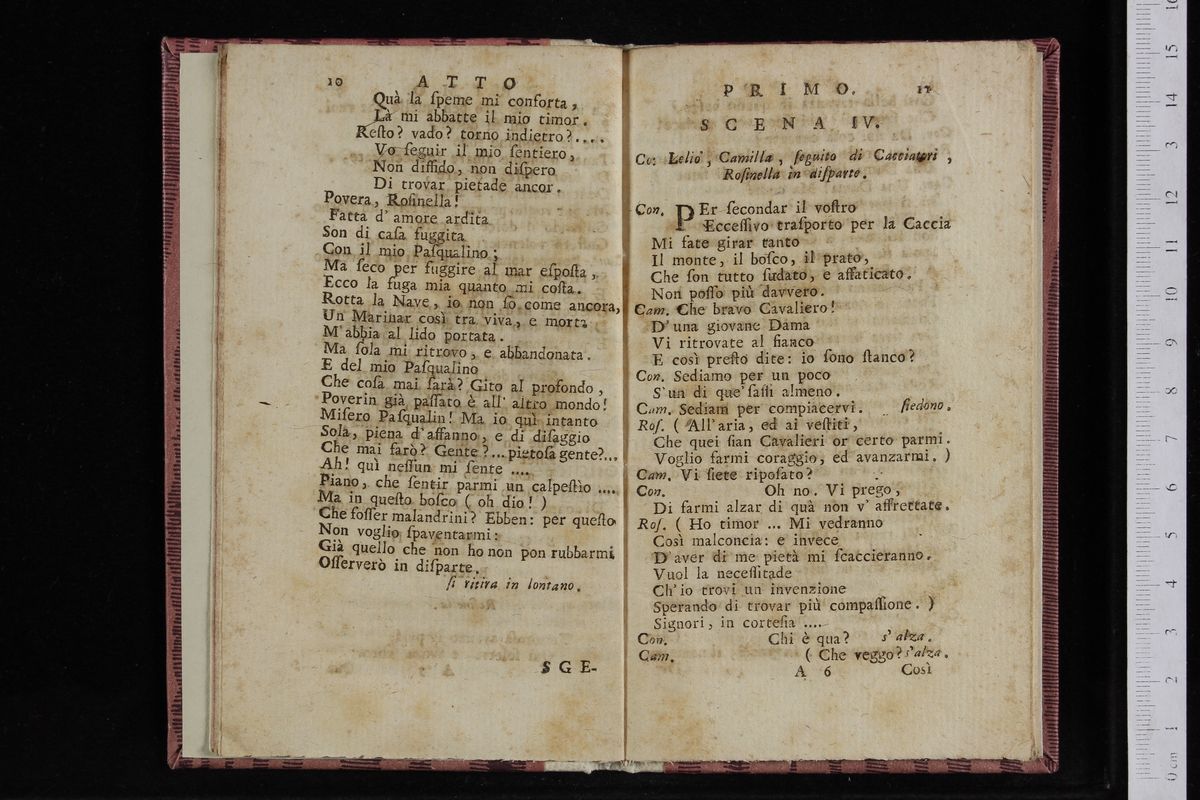 10 ATTO
Quà la ſpeme mi conforta,
Là mi abbatte il mio timor.
Reſto? vado? torno indietro?....
Vo ſeguir il mio ſentiero,
Non diffido, non diſpero
Di trovar pietade ancor.
Povera, Roſinella!
Fatta d'amore ardita
Son di caſa fuggita
Con il mio Paſqualino;
Ma ſeco per fuggire al mar eſpoſta,
Ecco la fuga mia quanto mi coſta.
Rotta la Nave, io non ſo come ancora,
Un Marinar così tra viva, e morta
M'abbia al lido portata.
Ma ſola mi ritrovo, e abbandonata.
E del mio Paſqualino
Che coſa mai ſarà? Gito al profondo,
Poverin già paſſato è all' altro mondo!
Miſero Paſqualin! Ma io quì intanto
Sola, piena d'affanno, e di diſaggio
Che mai farò? Gente?...pietoſa gente?...
Ah! quì neſſun mi ſente ....
Piano, che ſentir parmi un calpeſtìo ....
Ma in queſto boſco (oh dio!)
Che foſſer malandrini? Ebben: per queſto
Non voglio ſpaventarmi:
Già quello che non ho non pon rubbarmi
Oſſerverò in diſparte.
ſi ritira in lontano.
SGE-
PRIMO. 11
SCENA IV.
Co: Lelio, Camilla, ſeguito di Cacciatori,
Roſinella in diſparte.
Con. PEr ſecondar il voſtro
Ecceſſivo traſporto per la Caccia
Mi fate girar tanto
Il monte, il boſco, il prato,
Che ſon tutto ſudato, e affaticato.
Non poſſo più davvero.
Cam. Che bravo Cavaliero!
D'una giovane Dama
Vi ritrovate al fianco
E così preſto dite: io ſono ſtanco?
Con. Sediamo per un poco
S'un di que' ſaſſi almeno.
Cam. Sediam per compiacervi. ſiedono.
Roſ. (All'aria, ed ai veſtiti,
Che quei ſian Cavalieri or certo parmi.
Voglio farmi coraggio, ed avanzarmi.)
Cam. Vi ſiete ripoſato?
Con. Oh no. Vi prego,
Di farmi alzar di quà non v'affrettate.
Roſ. (Ho timor ... Mi vedranno
Così malconcia: e invece
D'aver di me pietà mi ſcaccieranno.
Vuol la neceſſitade
Ch'io trovi un invenzione
Sperando di trovar più compaſſione.)
Signori, in corteſia ....
Con. Chi è qua? s'alza.
Cam. (Che veggo? s'alza.
A 6 Così
0 cm 1 2 3 4 5 6 7 8 9 10 11 12 13 14 15 16